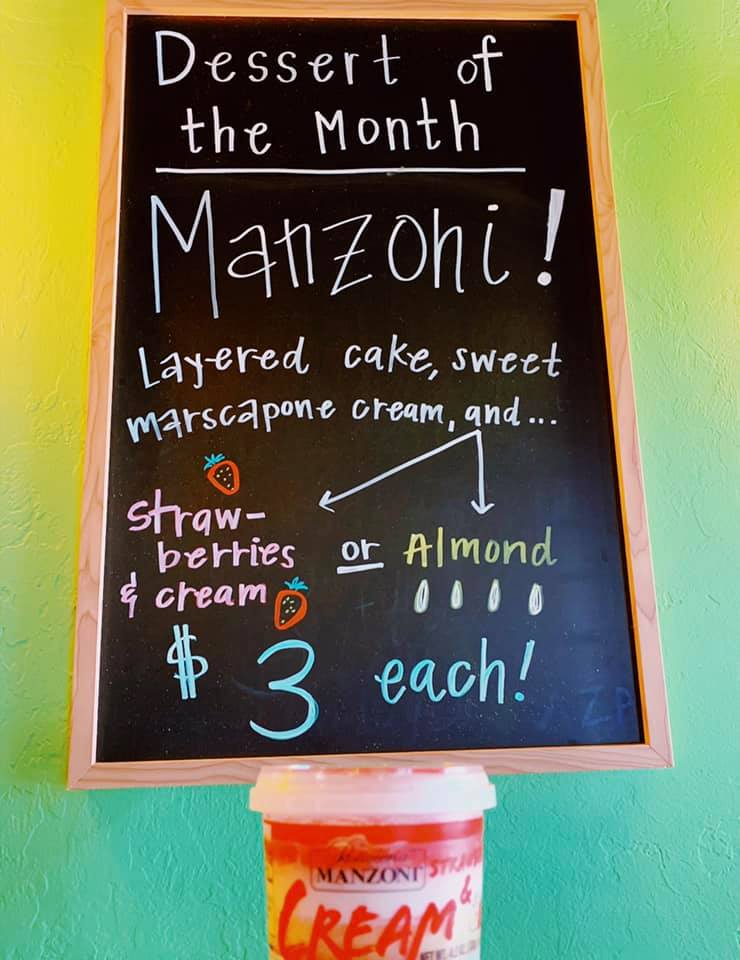 Dessert of
the Month
Manzoni!
Layered cake, sweet
marscapone cream, and...
Straw-
berries
& cream
or Almond
$3 each!
MANZONI
&
CREAM